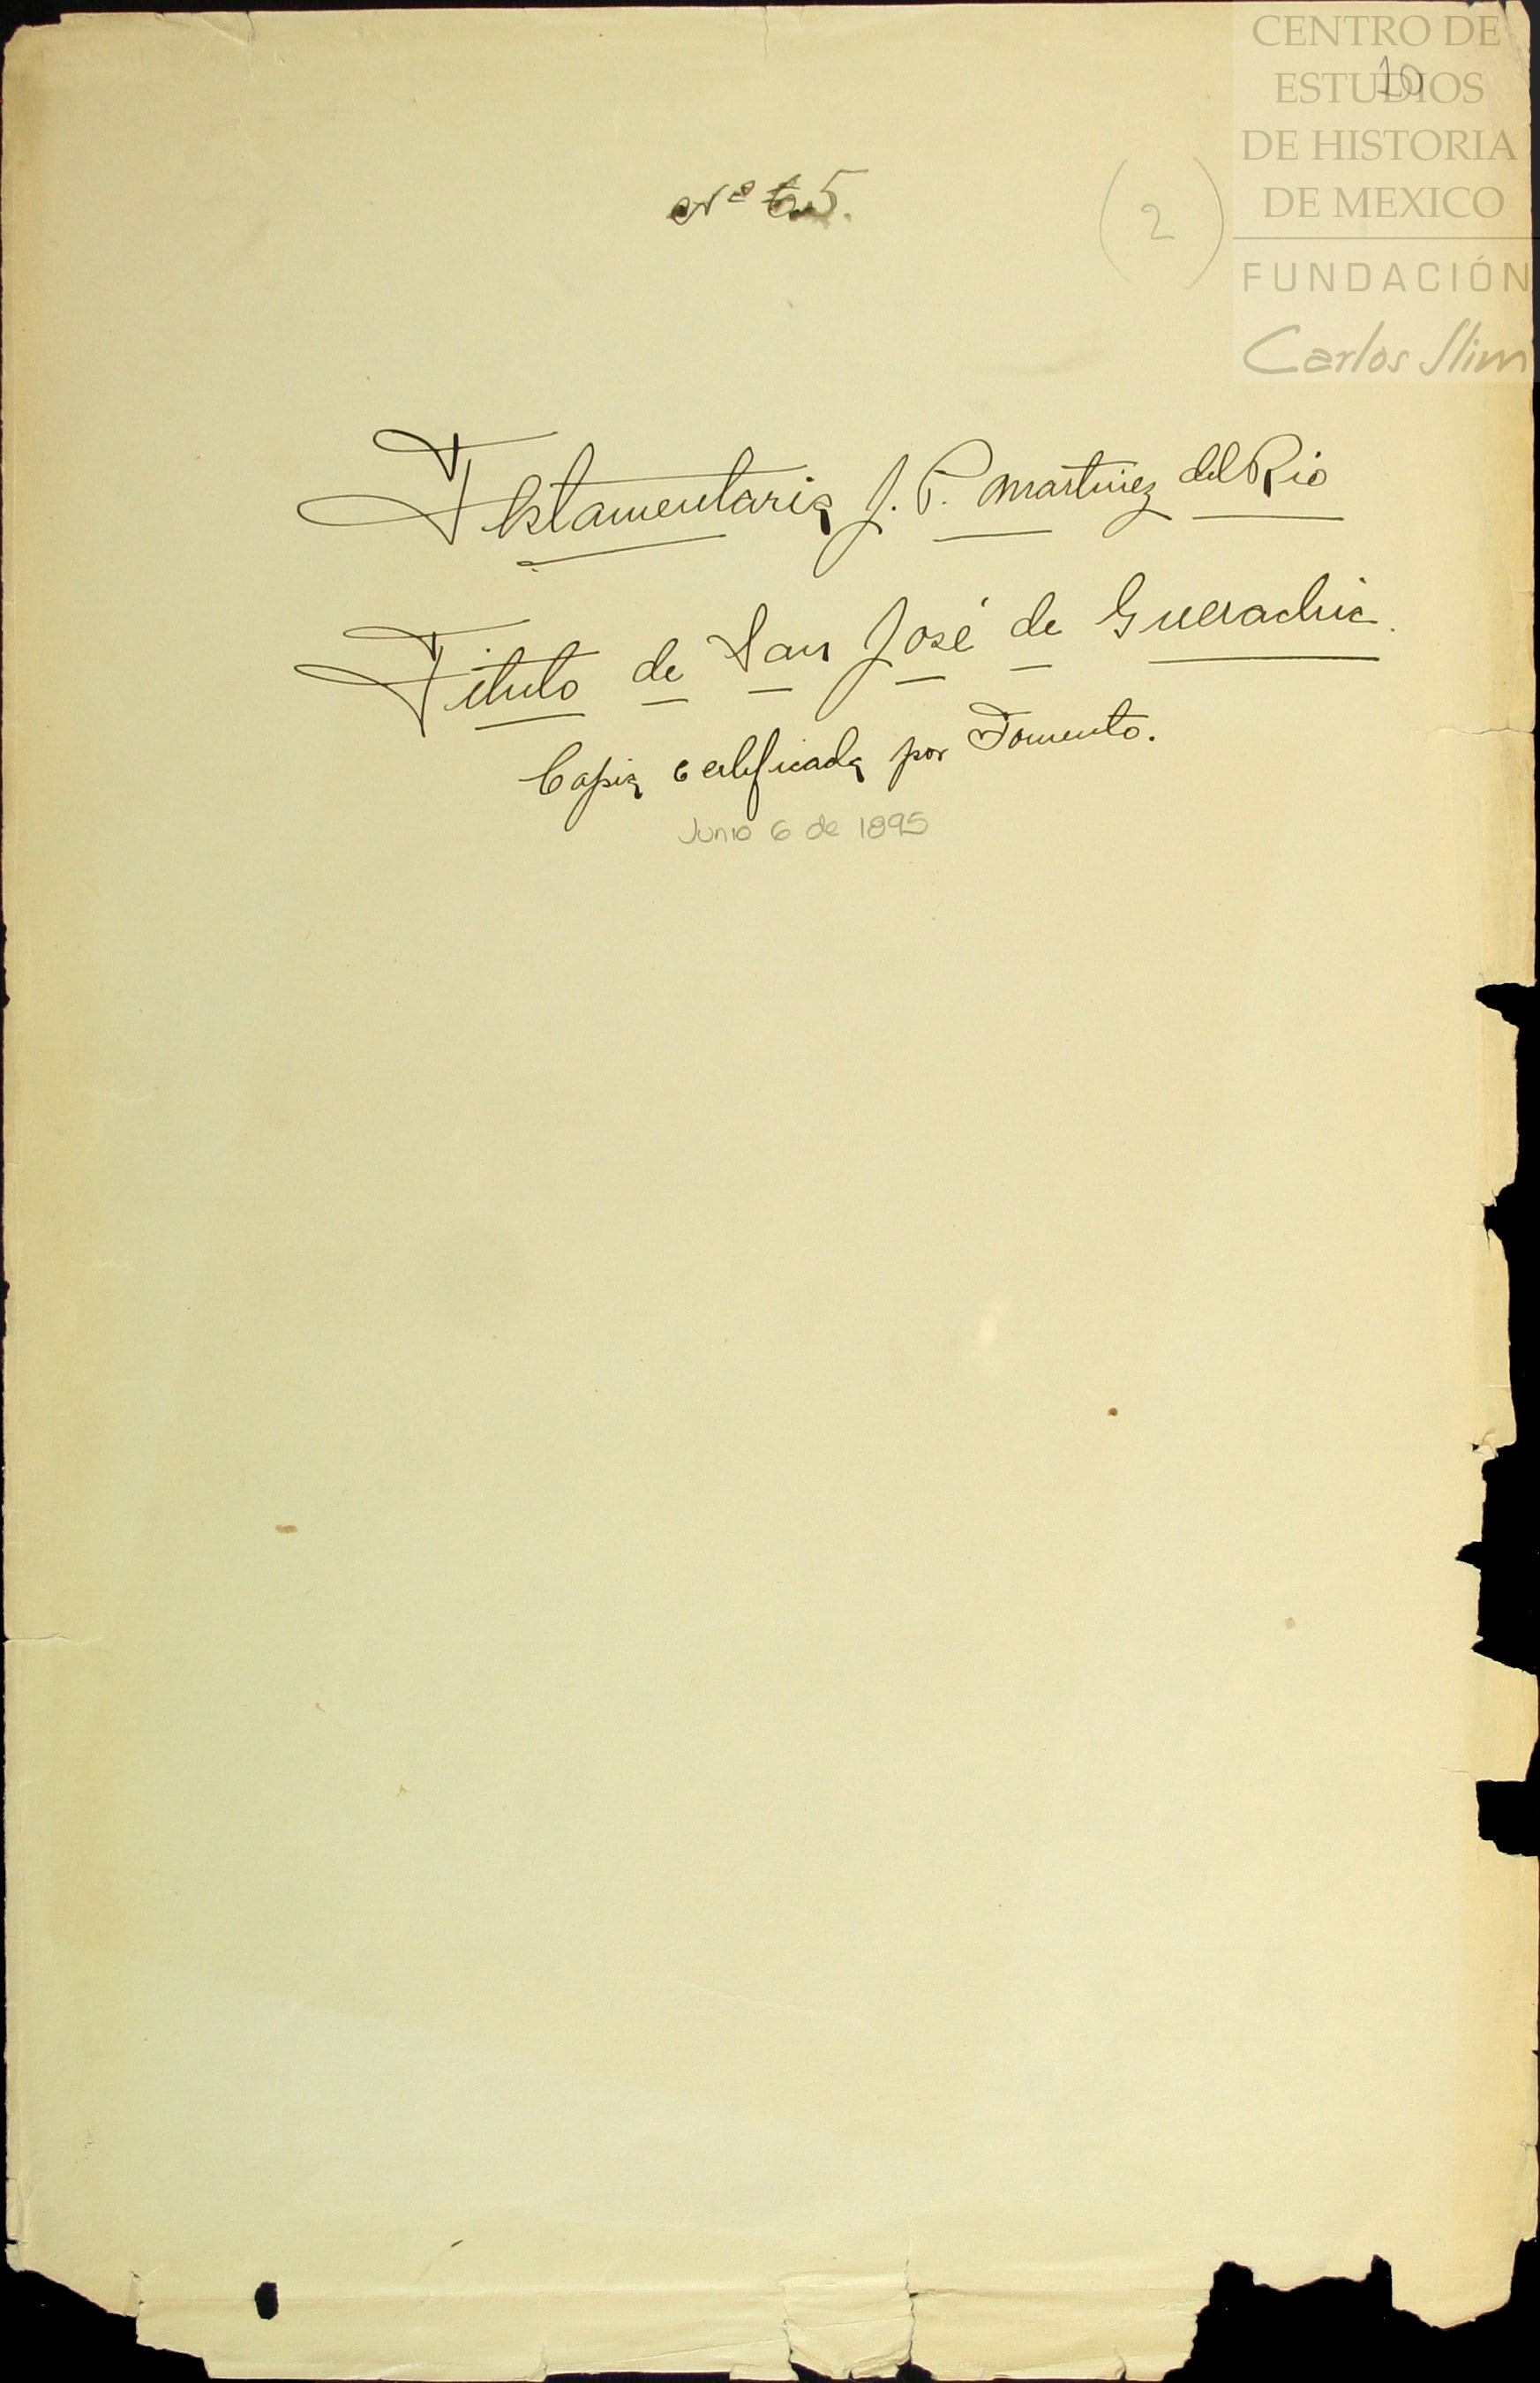 CENTRO DE
ESTUDIOS
DE HISTORIA
DE MEXICO
FUNDACIÓN
Carlos Slim
10
(2)
Nº 65.
Testamentaria J. P. Martinez del Rio
Titulo de San José de Guerachic.
Copia certificada por Fomento.
Junio 6 de 1895